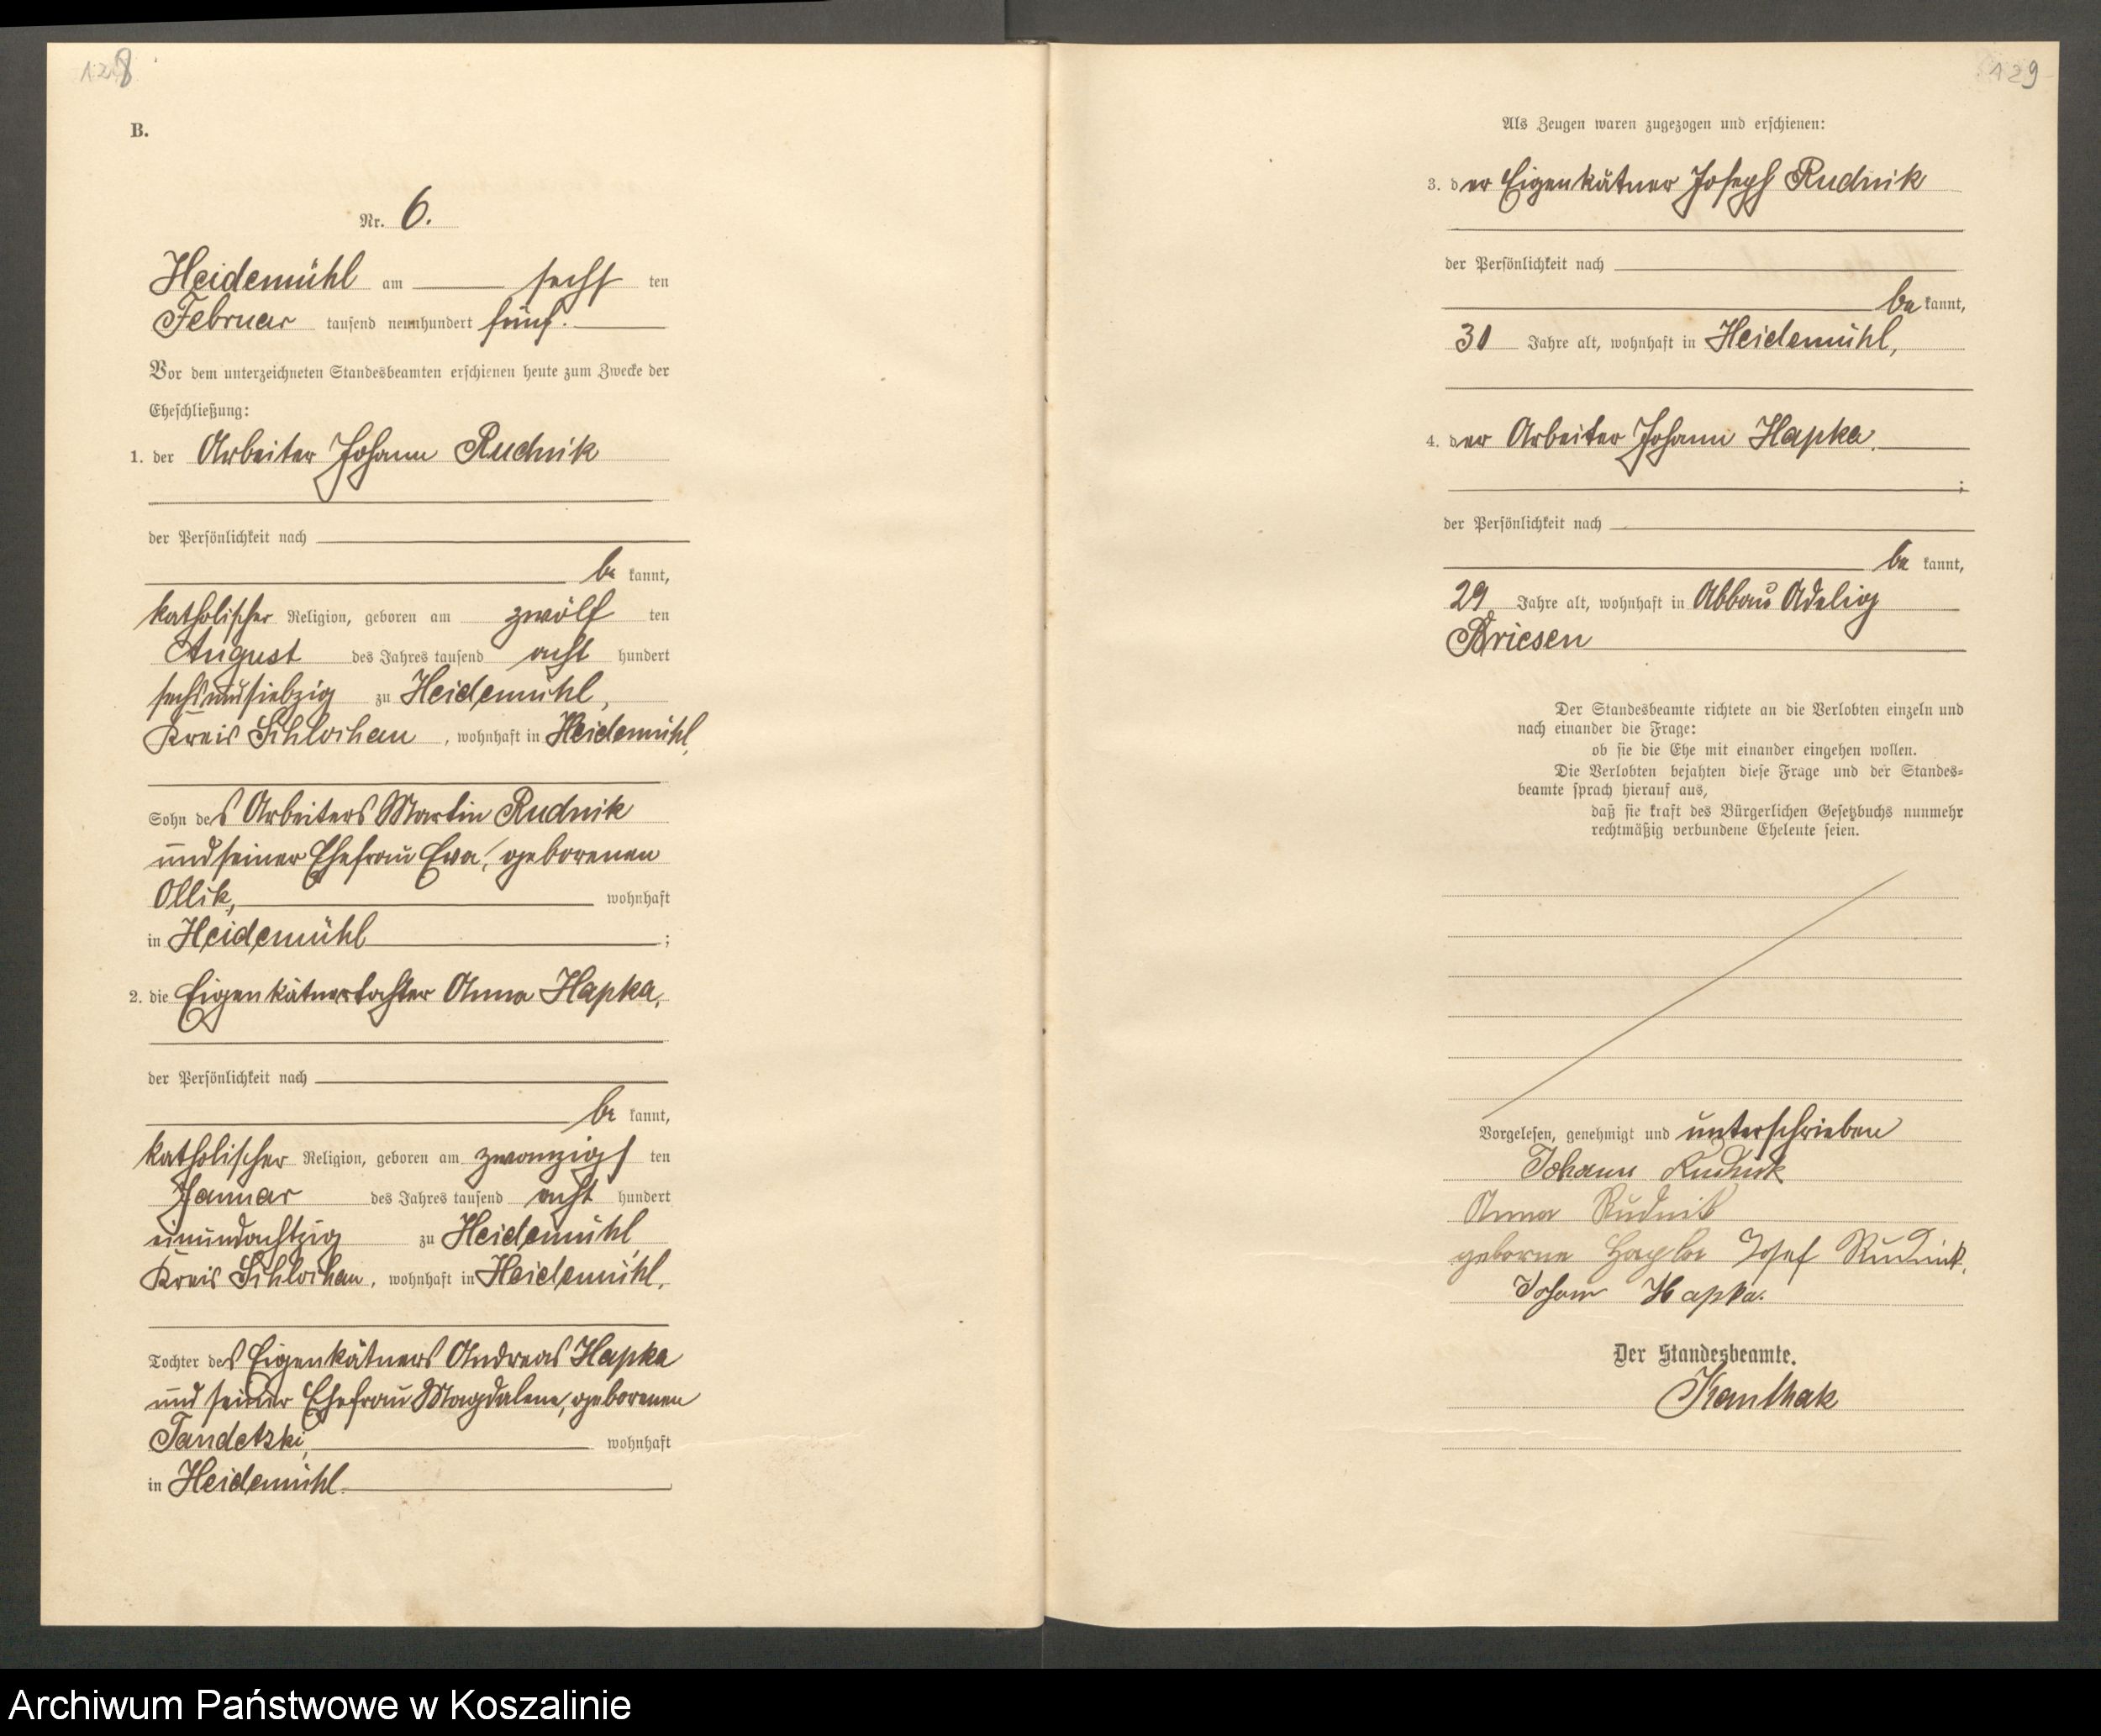 128
B.
Nr. 6.
Heidemühl am sechs ten
Februar tausend neunhundert fünf.
Vor dem unterzeichneten Standesbeamten erschienen heute zum Zwecke der
Eheschließung:
1. der Arbeiter Johann Rudnik
der Persönlichkeit nach
be kannt,
katholischer Religion, geboren am zwölf ten
August des Jahres tausend acht hundert
sechsundsiebzig zu Heidemühl,
Kreis Schlochau, wohnhaft in Heidemühl,
Sohn des Arbeiters Martin Rudnik
und seiner Ehefrau Eva, geborenen
Ollik, wohnhaft
in Heidemühl ;
2. die Eigenkätnertochter Anna Hapka,
der Persönlichkeit nach
be kannt,
katholischer Religion, geboren am zwanzigs ten
Januar des Jahres tausend acht hundert
einundachtzig zu Heidemühl,
Kreis Schlochau, wohnhaft in Heidemühl,
Tochter des Eigenkätners Andreas Hapka
und seiner Ehefrau Magdalene, geborenen
Tandetzki, wohnhaft
in Heidemühl.
129
Als Zeugen waren zugezogen und erschienen:
3. der Eigenkätner Joseph Rudnik
der Persönlichkeit nach
be kannt,
31 Jahre alt, wohnhaft in Heidemühl,
4. der Arbeiter Johann Hapka.
;
der Persönlichkeit nach
be kannt,
29 Jahre alt, wohnhaft in Abbau Adelig
Briesen
Der Standesbeamte richtete an die Verlobten einzeln und
nach einander die Frage:
ob sie die Ehe mit einander eingehen wollen.
Die Verlobten bejahten diese Frage und der Standes-
beamte sprach hierauf aus,
daß sie kraft des Bürgerlichen Gesetzbuchs nunmehr
rechtmäßig verbundene Eheleute seien.
Vorgelesen, genehmigt und unterschrieben
Johann Rudnik
Anna Rudnik
geborne Josef Rudnik,
Johann Hapka.
Der Standesbeamte.
Kanthak
Archiwum Państwowe w Koszalinie